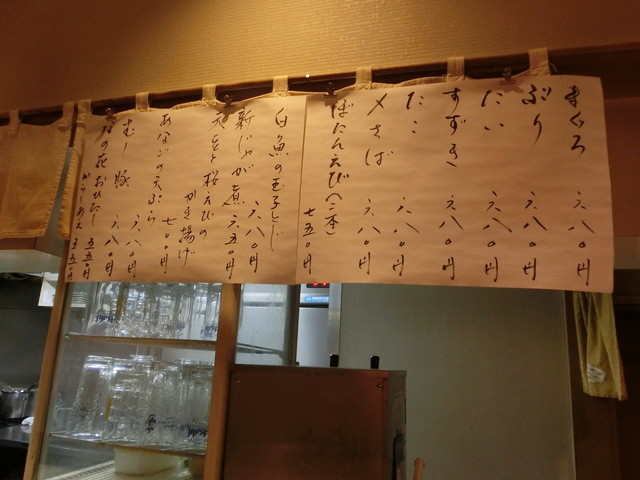 まぐろ 六八〇円
ぶり 六八〇円
たい 六八〇円
すずき 六八〇円
たこ 六八〇円
〆さば 六八〇円
ぼたんえび(二本) 七五〇円
白魚の玉子とじ 六八〇円
新じゃが煮 六五〇円
桜えびの
かき揚げ 七〇〇円
あなごの天ぷら 六八〇円
むし豚 六八〇円
菜の花おひたし 五五〇円
からしあえ 五五〇円